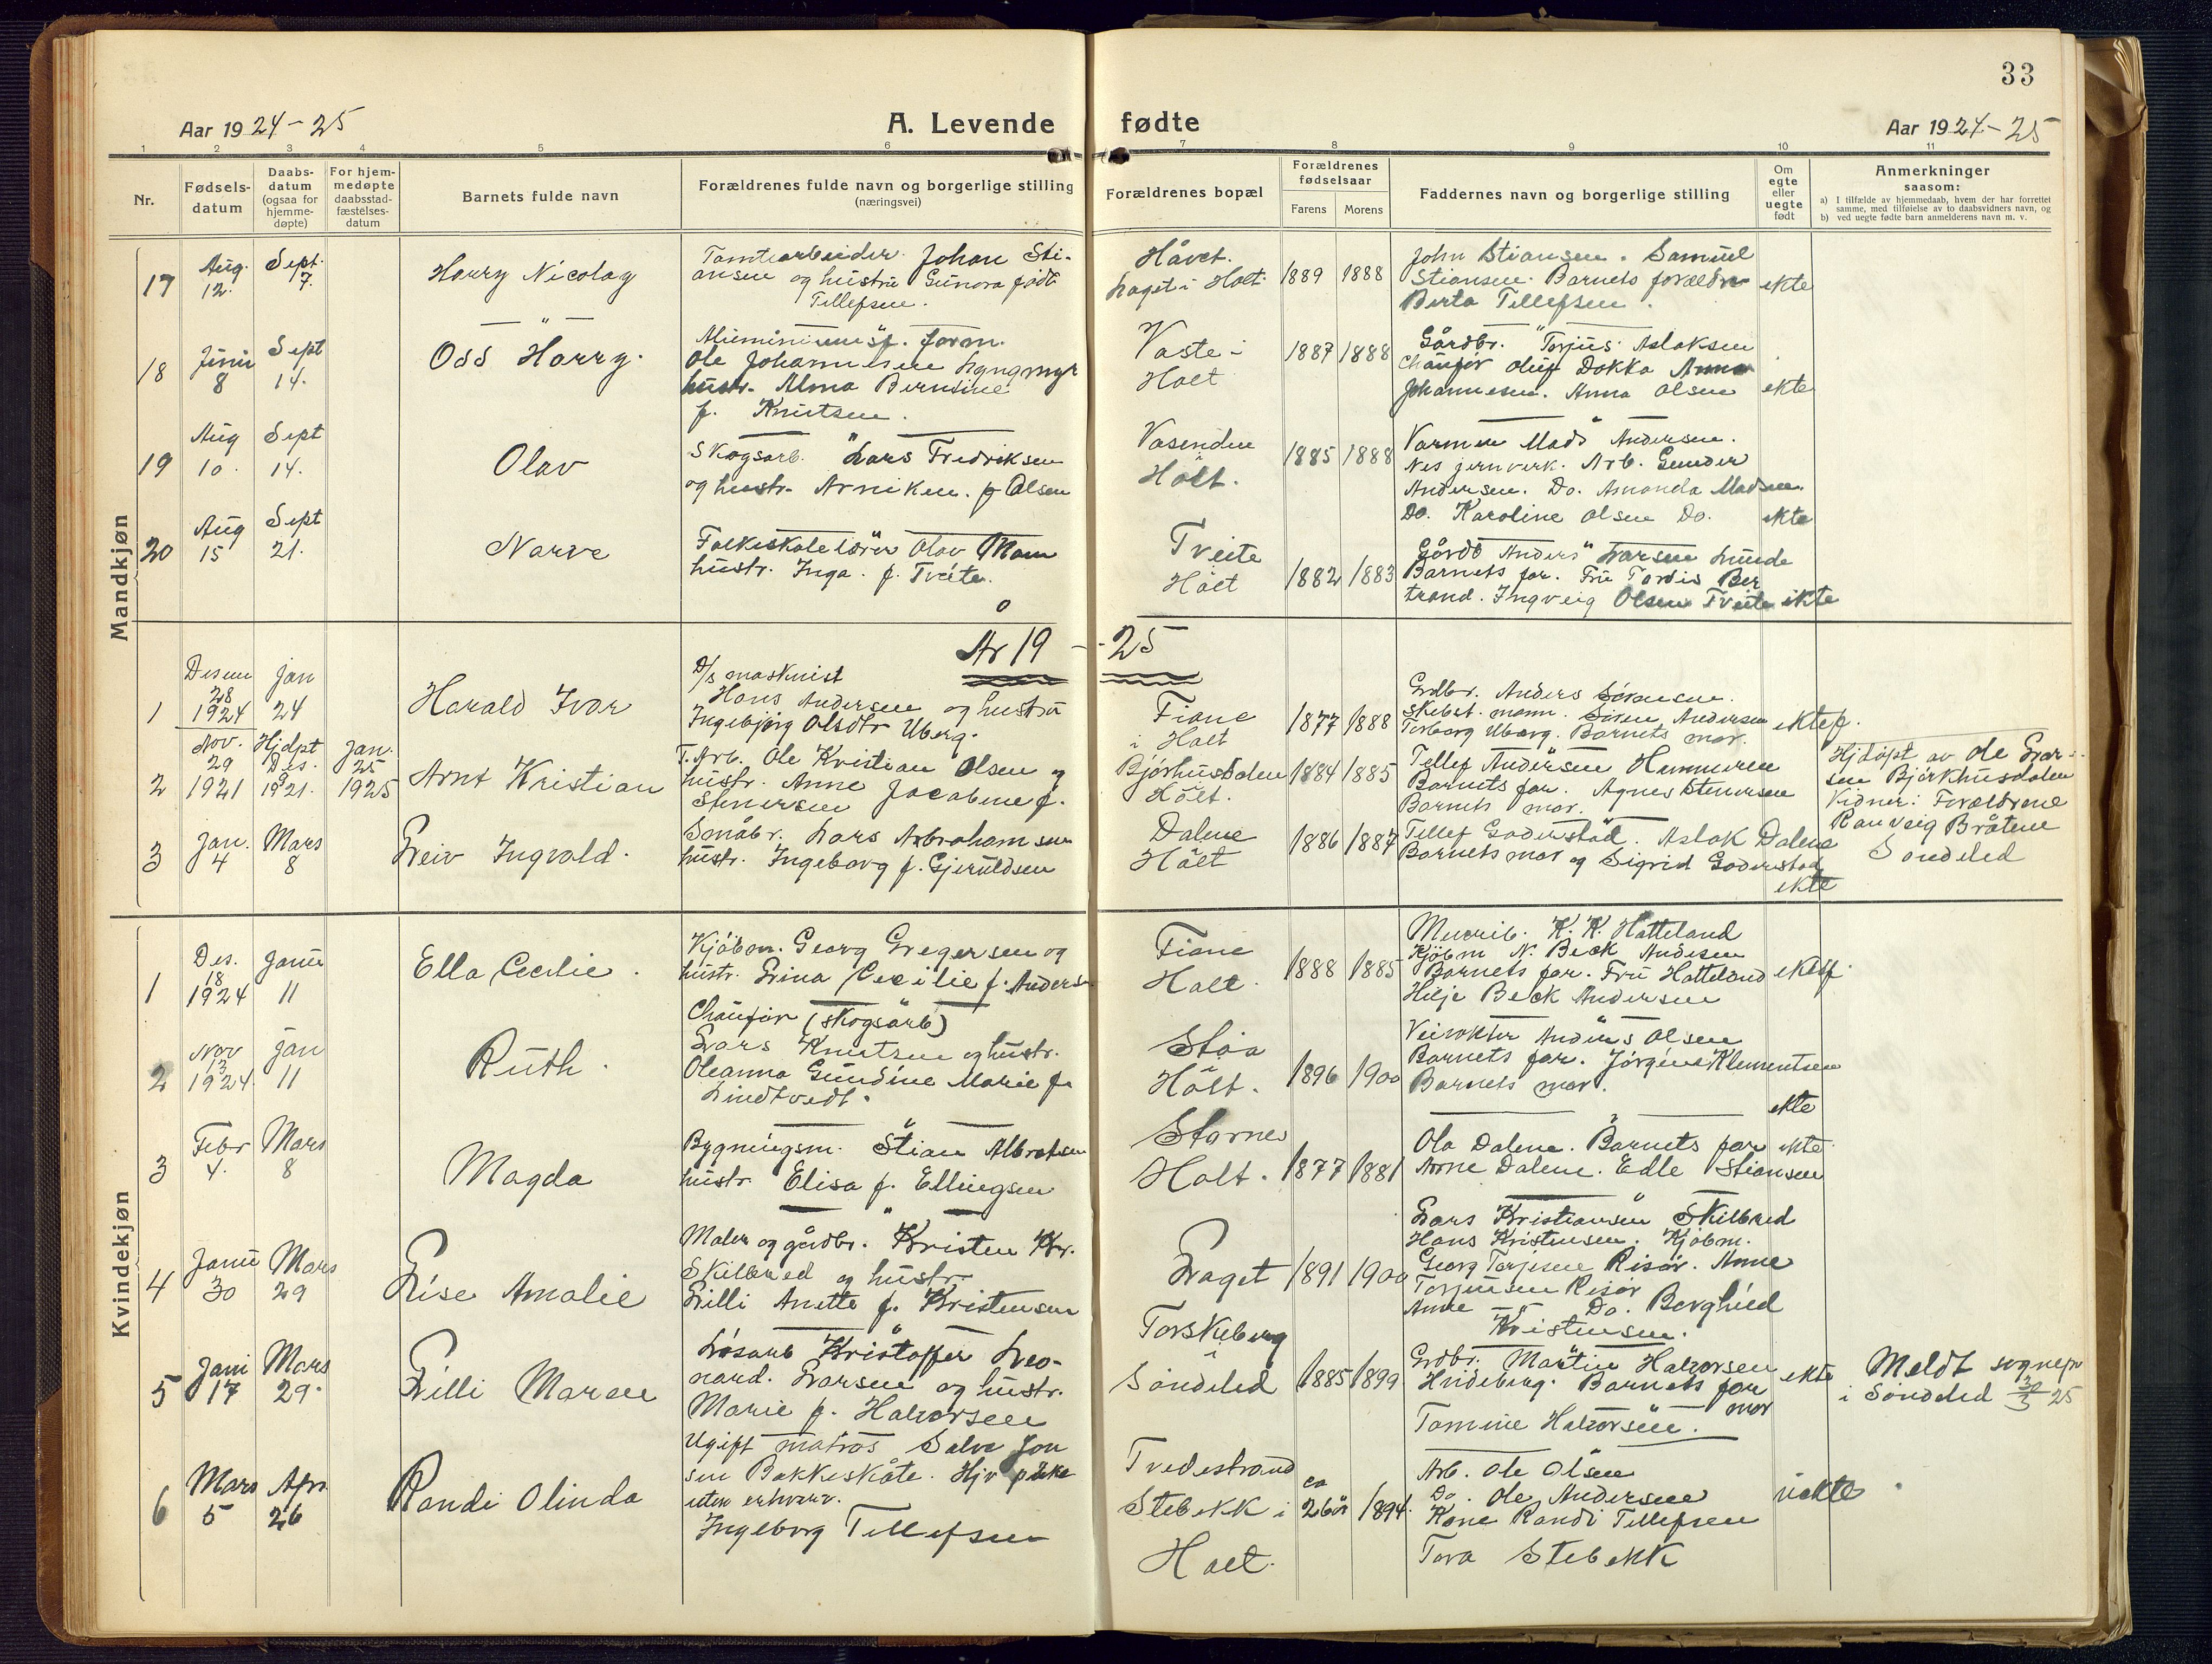 33
Aar 1924-25
A. Levende fødte
Aar 1924-25
1 2 3 4 5 6 7 8 9 10 11
Nr.
Fødsels-
datum
Daabs-
datum
(ogsaa for
hjemme-
døpte)
For hjem-
medøpte
daabsstad-
fæstelses-
datum
Barnets fulde navn
Forældrenes fulde navn og borgerlige stilling
(næringsvei)
Forældrenes bopæl
Forældrenes
fødselsaar
Farens
Morens
Faddernes navn og borgerlige stilling
Om
egte
eller
uegte
født
Anmerkninger
saasom:
a) I tilfælde av hjemmedaab, hvem der har forrettet
samme, med tilføielse av to daabsvidners navn, og
b) ved uegte fødte barn anmelderens navn m. v.
Mandkjøn
17
Aug.
12.
Sept.
7.
Harry Nicolay
Tomtearbeider Johan Sti-
ansen og hustru Gunora født
Tellefsen.
Håvet.
haget i Holt.
1889
1888
John Stiansen. Samuel
Stiansen. Barnets forældre
Berta Tellefsen.
ekte
18
Juni
8
Sept
14.
Odd Harry.
Aluminiumsf. form.
Ole Johannesen Lyngmyr
hustr. Alma Berntine
f. Knutsen.
Vaste i
Holt
1887
1888
Gårdbr. Torjus Aslaksen
Chaufør Oluf Dokka Anna
Johannesen. Anna Olsen
ekte
19
Aug
10.
Sept
14.
Olav
Skogsarb. Lars Fredriksen
og hustr. Arniken. f Olsen
Vasenden
Holt.
1885
1888
Varmen Mads Andersen.
Nes jernverk. Arb. Gunder
Andersen. Do. Amanda Madsen.
Do. Karoline Olsen Do.
ekte
20
Aug
15
Sept
21.
Narve
Folkeskolelærer Olav Mom
hustr. Inga. f. Tveite.
Tveite
Holt
1882
1883
Gårdb Anders Larsen Lunde
Barnets far. Fru Tordis Ber
trand. Ingveig Olsen Tveite
ekte
År 19 - 25
1
Desem
28
1924
Jan
24
Harald Ivar
D/s maskinist
Hans Andersen og hustru
Ingebjørg Olsdtr Uberg.
Fiane
i Holt
1877
1888
Grdbr. Anders Sørensen.
Skibst. mann. Søren Andersen
Torborg Uberg. Barnets mor.
ektef.
2
Nov.
29
1921
Hjdpt
Des.
9
1921.
Jan.
25
1925
Arnt Kristian
T. Arb. Ole Kristian Olsen og
hustr. Anne Jacobine f.
Stenersen
Bjørhusdalen
Holt.
1884
1885
Tellef Andersen Hammeren
Barnets far. Agnes Stenersen
Barnets mor.
Hjdøpt av Ole Lar-
sen Bjørkhusdalen
Vidner: Forældrene
Ranveig Bråtene
Søndeled
3
Jan.
4
Mars
8
Leiv Ingvald.
Småbr. Lars Abrahamsen
hustr. Ingeborg f. Gjeruldsen
Dalene
Holt
1886
1887
Tellef Goderstad. Aslak Dalene
Barnets mor og Sigrid Goderstad
ekte
Kvindekjøn
1
Des.
18
1924
Janu
11
Ella Cecilie.
Kjøbm. Georg Gregersen og
hustr. Lina Cecilie f. Anders-
Fiane
Holt.
1888
1885
Murerb. K. K. Hatteland
Kjøbm N. Beck Andesen
Barnets far. Fru Hatteland
Helje Beck Andersen
ektef.
2
Nov
13
1924.
Jan
11
Ruth.
Chaufør (skogsarb)
Lars Knutsen og hustr.
Oleanna Gundine Marie f.
Lindtvedt.
Støa
Holt.
1896
1900
Veivokter Anders Olsen
Barnets far. Jørgine Klementsen
Barnets mor.
ekte
3
Febr
4.
Mars
8
Magda
Bygningsm. Stian Albretsen
hustr Elisa f. Ellingsen
Starnes
Holt.
1877
1881
Ola Dalene. Barnets far
Anne Dalene. Edle Stiansen
ekte
4
Janu
30
Mars
29
Lise Amalie
Maler og gårdbr. Kristen Kr.
Skilbred og hustr.
Lilli Anette f. Kristensen
Laget
1891
1900
Lars Kristiansen Skilbred
Hans Kristensen. Kjøbm.
Georg Torjusen Risør. Anne
Torjusen Risør
Anne Do. Borghild
Kristensen.
5
Jani
17
Mars
29.
Lilli Maran
Løsarb Kristoffer Leo-
nard. Larsen og hustr.
Marie f. Halvorsen
Torskeberg
Søndeled
1885
1899
Grdbr. Martin Halvorsen
Hvideberg. Barnets far
mor
Tomine Halvorsen.
ekte
Meldt sognepr
i Søndeled 30/3 25
6
Mars
5
Apr.
26
Randi Olinda
Ugift matros Salve Jon
sen Bakkeskåte. Hjv pike
uten erhverv.
Ingeborg Tellefsen
Tvedestrand
Stebekk i
Holt.
ca
26 år
1894.
Arb. Ole Olsen
Do. Ole Andersen
Kone Randi Tellefsen
Tora Stebekk
uekte